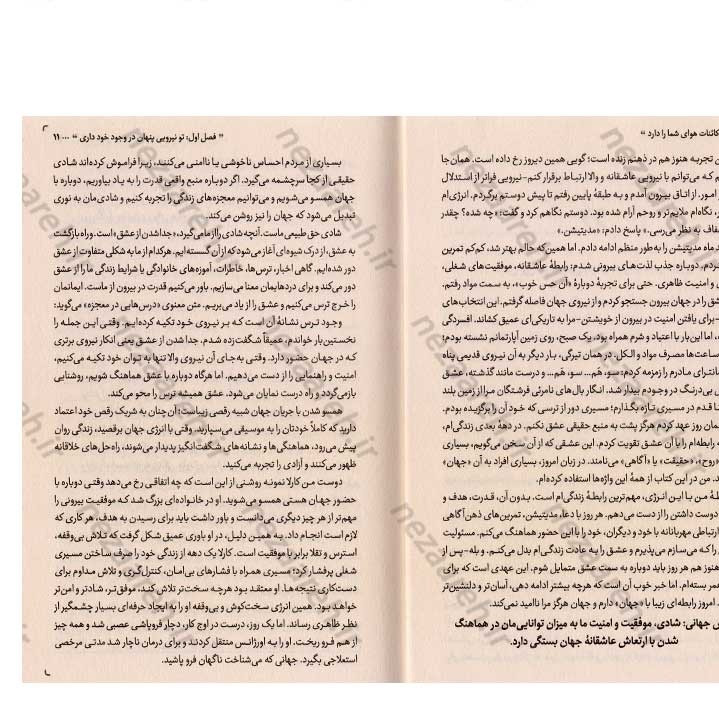 کائنات هوای شما را دارد
تجربه هنوز هم در ذهنم زنده است؛ گویی همین دیروز رخ داده است. همان‌جا
که می‌توانم با نیرویی عاشقانه و والا ارتباط برقرار کنم-نیرویی فراتر از استدلال
امور. از اتاق بیرون آمدم و به طبقهٔ پایین رفتم تا پیش دوستم برگردم. انرژی‌ام
نگاه‌ام ملایم‌تر و روحم آرام شده بود. دوستم نگاهم کرد و گفت: «چه شده؟ چقدر
به نظر می‌رسی.» پاسخ دادم: «مدیتیشن.»
ماه مدیتیشن را به‌طور منظم ادامه دادم. اما همین‌که حالم بهتر شد، کم‌کم تمرین
دوباره جذب لذت‌های بیرونی شدم: رابطهٔ عاشقانه، موفقیت‌های شغلی،
و امنیت ظاهری. حتی برای تجربهٔ دوبارهٔ «آن حس خوب»، به سمت مواد رفتم.
را در جهان بیرون جستجو کردم و از نیروی جهان فاصله گرفتم. این انتخاب‌های
-برای یافتن امنیت در بیرون از خویشتن-مرا به تاریکی‌ای عمیق کشاند. افسردگی
اما این‌بار با اعتیاد و شرم همراه بود. یک صبح، روی زمین آپارتمانم نشسته بودم؛
ساعت‌ها مصرف مواد و الکل. در همان تیرگی، بار دیگر به آن نیروی قدیمی پناه
مانترای مادرم را زمزمه کردم: سو، هَم... سو، هَم... و درست مانند گذشته، عشق
بی‌درنگ در وجودم بیدار شد. انگار بال‌های نامرئی فرشتگان مرا از زمین بلند
قدم در مسیری تازه بگذارم؛ مسیری دور از ترسی که خود آن را برگزیده بودم.
همان روز عهد کردم هرگز پشت به منبع حقیقی عشق نکنم. در دههٔ بعدی زندگی‌ام،
رابطه‌ام را با آن عشق تقویت کردم. این عشقی که از آن سخن می‌گویم، بسیاری
«روح»، «حقیقت» یا «آگاهی» می‌نامند. در زبان امروز، بسیاری افراد به آن «جهان»
من در این کتاب از همهٔ این واژه‌ها استفاده کرده‌ام.
من با این انرژی، مهم‌ترین رابطهٔ زندگی‌ام است. بدون آن، قدرت، هدف و
دوست داشتن را از دست می‌دهم. هر روز با دعا، مدیتیشن، تمرین‌های ذهن‌آگاهی
ارتباطی مهربانانه با خود و دیگران، خود را با این حضور هماهنگ می‌کنم. مسئولیت
را که می‌سازم می‌پذیرم و عشق را به عادت زندگی‌ام بدل می‌کنم. و بله-پس از
هنوز هم هر روز باید دوباره به سمت عشق متمایل شوم. این عهدی است که برای
عمر بسته‌ام. اما خبر خوب آن است که هرچه بیشتر ادامه دهی، آسان‌تر و دلنشین‌تر
امروز رابطه‌ای زیبا با «جهان» دارم و جهان هرگز مرا ناامید نمی‌کند.
جهانی: شادی، موفقیت و امنیت ما به میزان توانایی‌مان در هماهنگ
شدن با ارتعاش عاشقانهٔ جهان بستگی دارد.
فصل اول: تو نیرویی پنهان در وجود خود داری ... ۱۱
بسیاری از مردم احساس ناخوشی یا ناامنی می‌کنند، زیرا فراموش کرده‌اند شادی
حقیقی از کجا سرچشمه می‌گیرد. اگر دوباره منبع واقعی قدرت را به یاد بیاوریم، دوباره با
جهان همسو می‌شویم و می‌توانیم معجزه‌های زندگی را تجربه کنیم و شادی‌مان به نوری
تبدیل می‌شود که جهان را نیز روشن می‌کند.
شادی حق طبیعی ماست. آنچه شادی را از ما می‌گیرد، «جدا شدن از عشق» است. و راه بازگشت
به عشق، از درک شیوه‌ای آغاز می‌شود که از آن گسسته‌ایم. هرکدام از ما به شکلی متفاوت از عشق
دور شده‌ایم. گاهی اخبار، ترس‌ها، خاطرات، آموزه‌های خانوادگی یا شرایط زندگی ما را از عشق
دور می‌کند و برای دردهایمان معنا می‌سازیم. باور می‌کنیم قدرت در بیرون از ماست. ایمانمان
را خرج ترس می‌کنیم و عشق را از یاد می‌بریم. متن معنوی «درس‌هایی در معجزه» می‌گوید:
وجود ترس نشانهٔ آن است که بر نیروی خود تکیه کرده‌ایم. وقتی این جمله را
نخستین بار خواندم، عمیقاً شگفت‌زده شدم. جدا شدن از عشق یعنی انکار نیروی برتری
که در جهان حضور دارد. وقتی به‌جای آن نیروی والا تنها به توان خود تکیه می‌کنیم،
امنیت و راهنمایی را از دست می‌دهیم. اما هرگاه دوباره با عشق هماهنگ شویم، روشنایی
بازمی‌گردد و راه درست نمایان می‌شود. عشق همیشه ترس را محو می‌کند.
همسو شدن با جریان جهان شبیه رقصی زیباست؛ آن‌چنان به شریک رقص خود اعتماد
دارید که کاملاً خودتان را به موسیقی می‌سپارید. وقتی با انرژی جهان برقصید، زندگی روان
پیش می‌رود، هماهنگی‌ها و نشانه‌های شگفت‌انگیز پدیدار می‌شوند، راه‌حل‌های خلاقانه
ظهور می‌کنند و آزادی را تجربه می‌کنید.
دوست من کارلا نمونه روشنی از این است که چه اتفاقی رخ می‌دهد وقتی دوباره با
حضور جهان هستی همسو می‌شوید. او در خانواده‌ای بزرگ شد که موفقیت بیرونی را
مهم‌تر از هر چیز دیگری می‌دانست و باور داشت باید برای رسیدن به هدف، هر کاری که
لازم است انجام داد. به همین دلیل، در او باوری عمیق شکل گرفت که تلاش بی‌وقفه،
استرس و تقلا برابر با موفقیت است. کارلا یک دهه از زندگی خود را صرف ساختن مسیری
شغلی پرفشار کرد؛ مسیری همراه با فشارهای بی‌امان، کنترل‌گری و تلاش مداوم برای
دست‌کاری نتیجه‌ها. او معتقد بود هرچه سخت‌تر تلاش کند، موفق‌تر، شادتر و امن‌تر
خواهد بود. همین انرژی سخت‌کوش و بی‌وقفه او را به ایجاد حرفه‌ای بسیار چشمگیر از
نظر ظاهری رساند. اما یک روز، درست در اوج کار، دچار فروپاشی عصبی شد و همه چیز
از هم فرو ریخت. او را به اورژانس منتقل کردند و برای درمان ناچار شد مدتی مرخصی
استعلاجی بگیرد. جهانی که می‌شناخت ناگهان فرو پاشید.